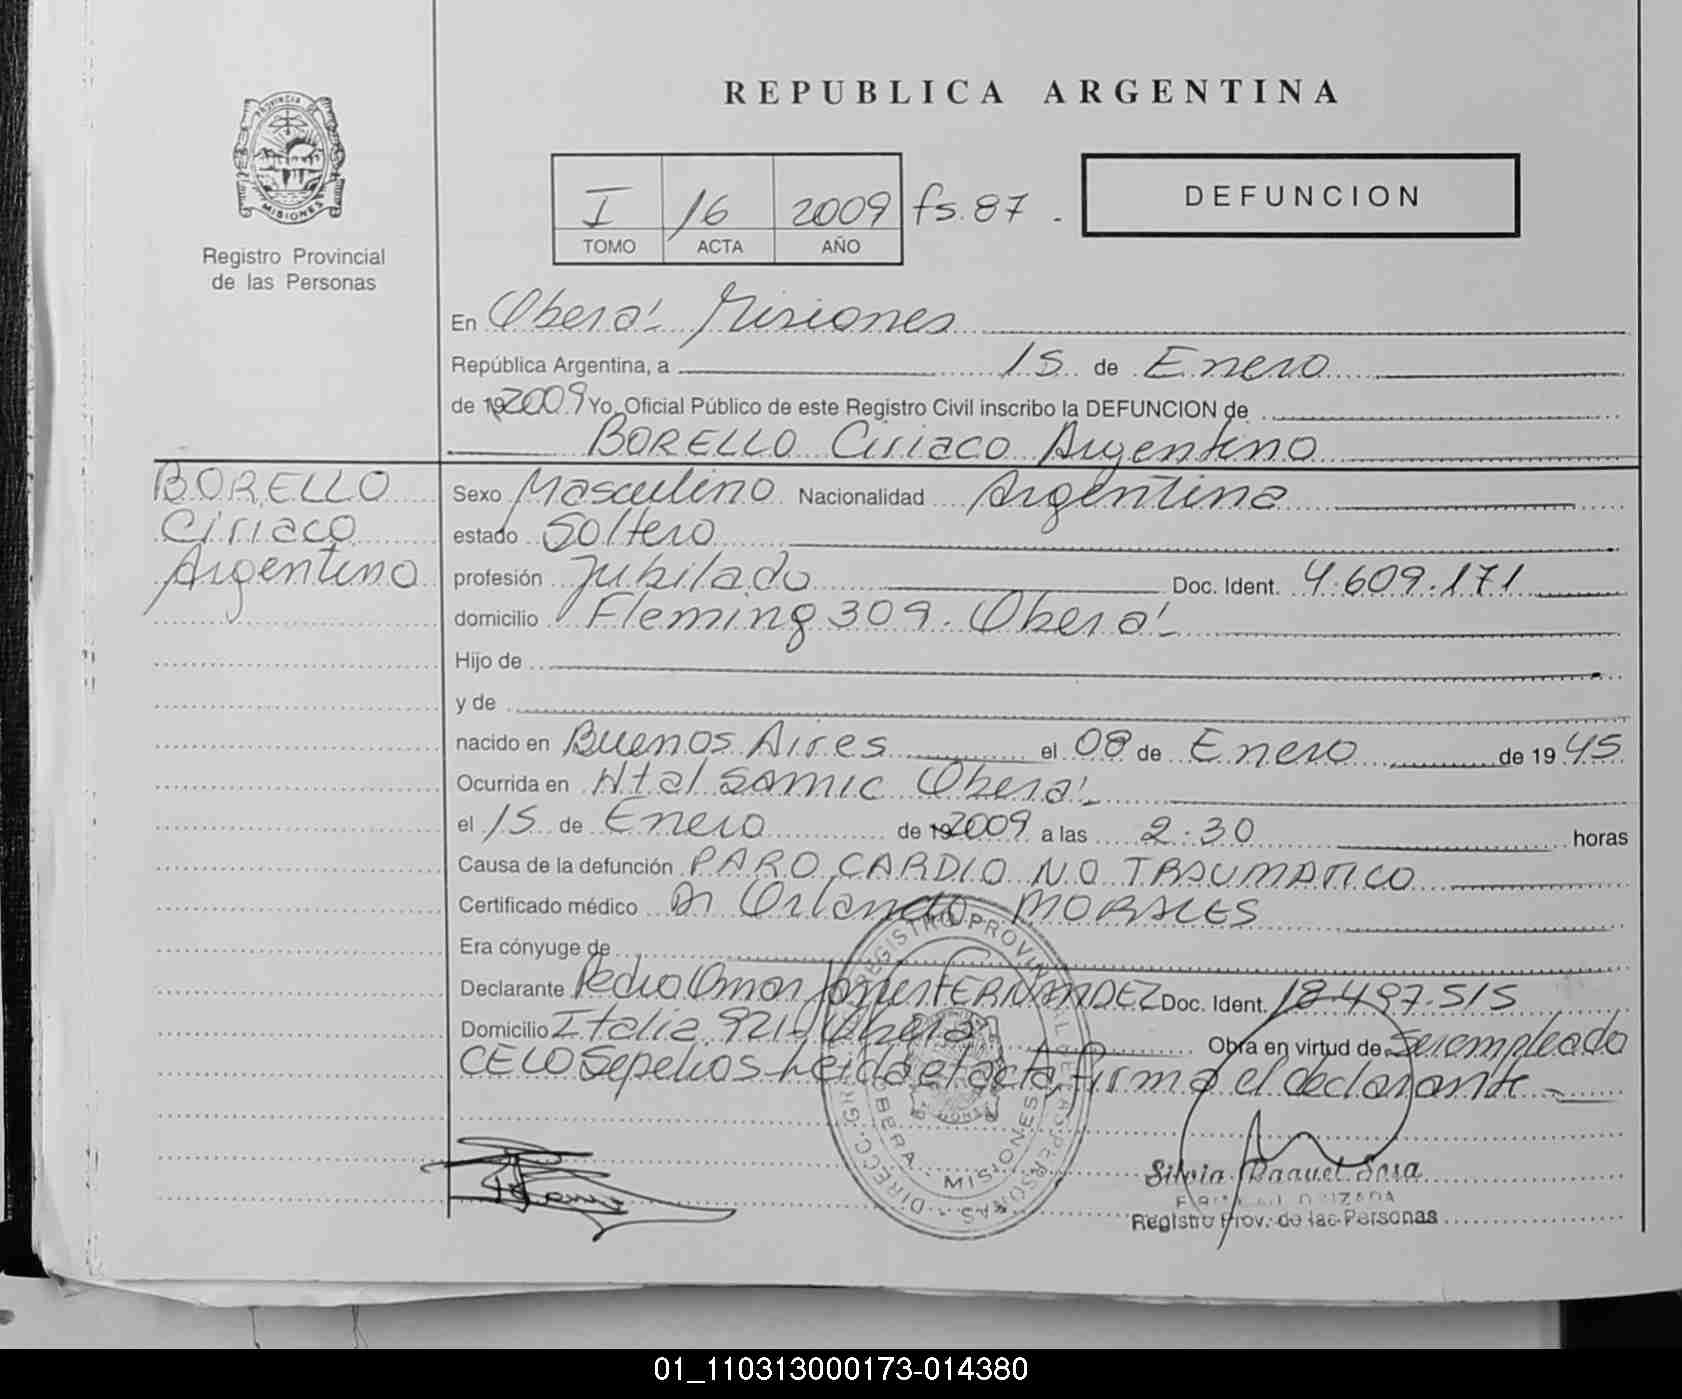 REPUBLICA ARGENTINA
PROVINCIA DE
MISIONES
Registro Provincial
de las Personas
I 16 2009 fs. 87.
TOMO ACTA AÑO
DEFUNCION
En Oberá Misiones
República Argentina, a 15 de Enero
de 192009 Yo, Oficial Público de este Registro Civil inscribo la DEFUNCION de
BORELLO Ciriaco Argentino
BORELLO
Ciriaco
Argentino
Sexo Masculino Nacionalidad Argentina
estado Soltero
profesión Jubilado Doc. Ident. 4.609.171
domicilio Fleming 309. Oberá
Hijo de
y de
nacido en Buenos Aires el 08 de Enero de 1945
Ocurrida en Htal SAMIC Oberá
el 15 de Enero de 192009 a las 2:30 horas
Causa de la defunción PARO CARDIO NO TRAUMATICO
Certificado médico Dr Orlando MORALES
Era cónyuge de
Declarante Pedro Omar FERNANDEZ Doc. Ident. 18.497.515
Domicilio Italia 921 Oberá Obra en virtud de ser empleado
CELO Sepelios Leida el acta, firma el declarante
DIRECC. GRAL. REGISTRO PROVINCIAL DE LAS PERSONAS
OBERA MISIONES
Silvia Raquel Sosa
Registro Prov. de las Personas
01_110313000173-014380